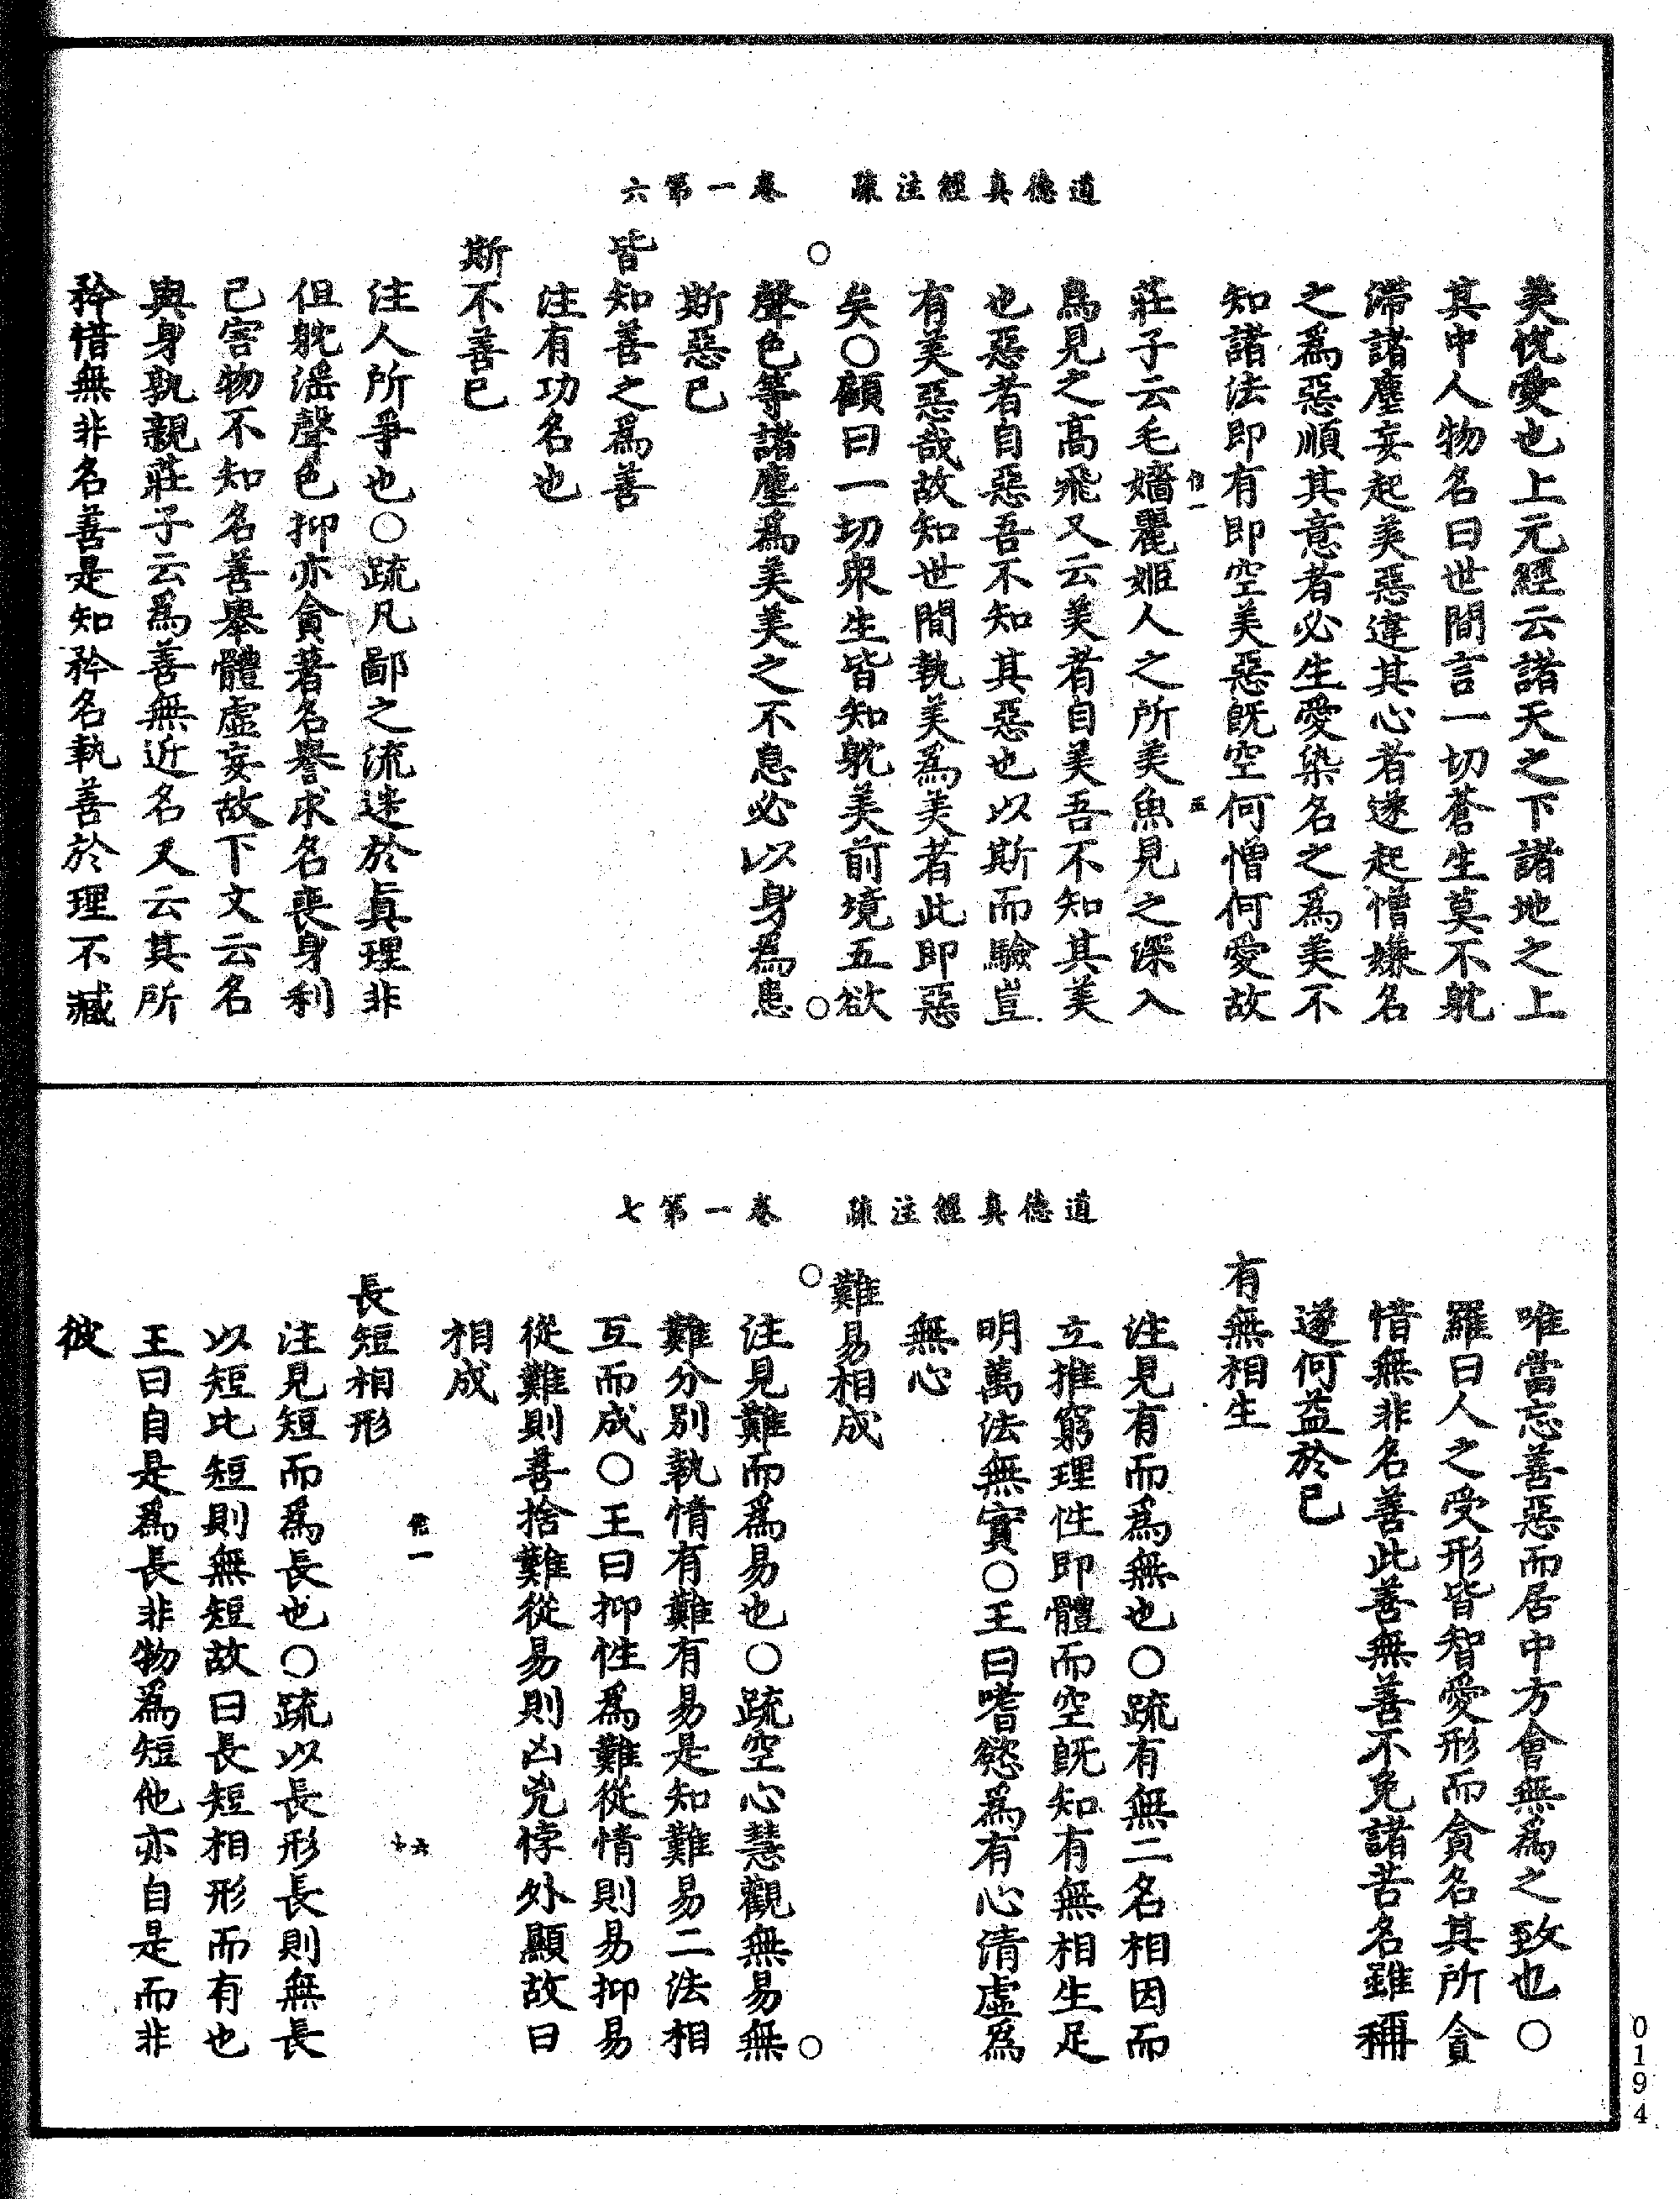 道德真經注疏　卷一第六
美恱愛也上元經云諸天之下諸地之上
其中人物名曰世間言一切蒼生莫不躭
滯諸塵妄起美惡違其心者遂起憎嫌名
之爲惡順其意者必生愛染名之爲美不
知諸法即有即空美惡旣空何憎何愛故
莊子云毛嬙麗姬人之所美魚見之深入
鳥見之高飛又云美者自美吾不知其美
也惡者自惡吾不知其惡也以斯而驗豈
有美惡哉故知世間執美爲美者此即惡
矣○顧曰一切衆生皆知躭美前境五欲
聲色等諸塵爲美美之不息必以身爲患
斯惡已
皆知善之爲善
注有功名也
斯不善已
注人所爭也○疏凡鄙之流迷於眞理非
但躭滛聲色抑亦貪著名譽求名喪身利
己害物不知名善舉體虛妄故下文云名
與身孰親莊子云爲善無近名又云其所
矜惜無非名善是知矜名執善於理不臧
道德真經注疏　卷一第七
唯當忘善惡而居中方會無爲之致也○
羅曰人之受形皆智愛形而貪名其所貪
惜無非名善此善無善不免諸苦名雖稱
遂何益於己
有無相生
注見有而爲無也○疏有無二名相因而
立推窮理性即體而空旣知有無相生足
明萬法無實○王曰嗜慾爲有心清虛爲
無心
難易相成
注見難而爲易也○疏空心慧觀無易無
難分別執情有難有易是知難易二法相
互而成○王曰抑性爲難從情則易抑易
從難則善捨難從易則凶兇悖外顯故曰
相成
長短相形
注見短而爲長也○疏以長形長則無長
以短比短則無短故曰長短相形而有也
王曰自是爲長非物爲短他亦自是而非
彼
0194